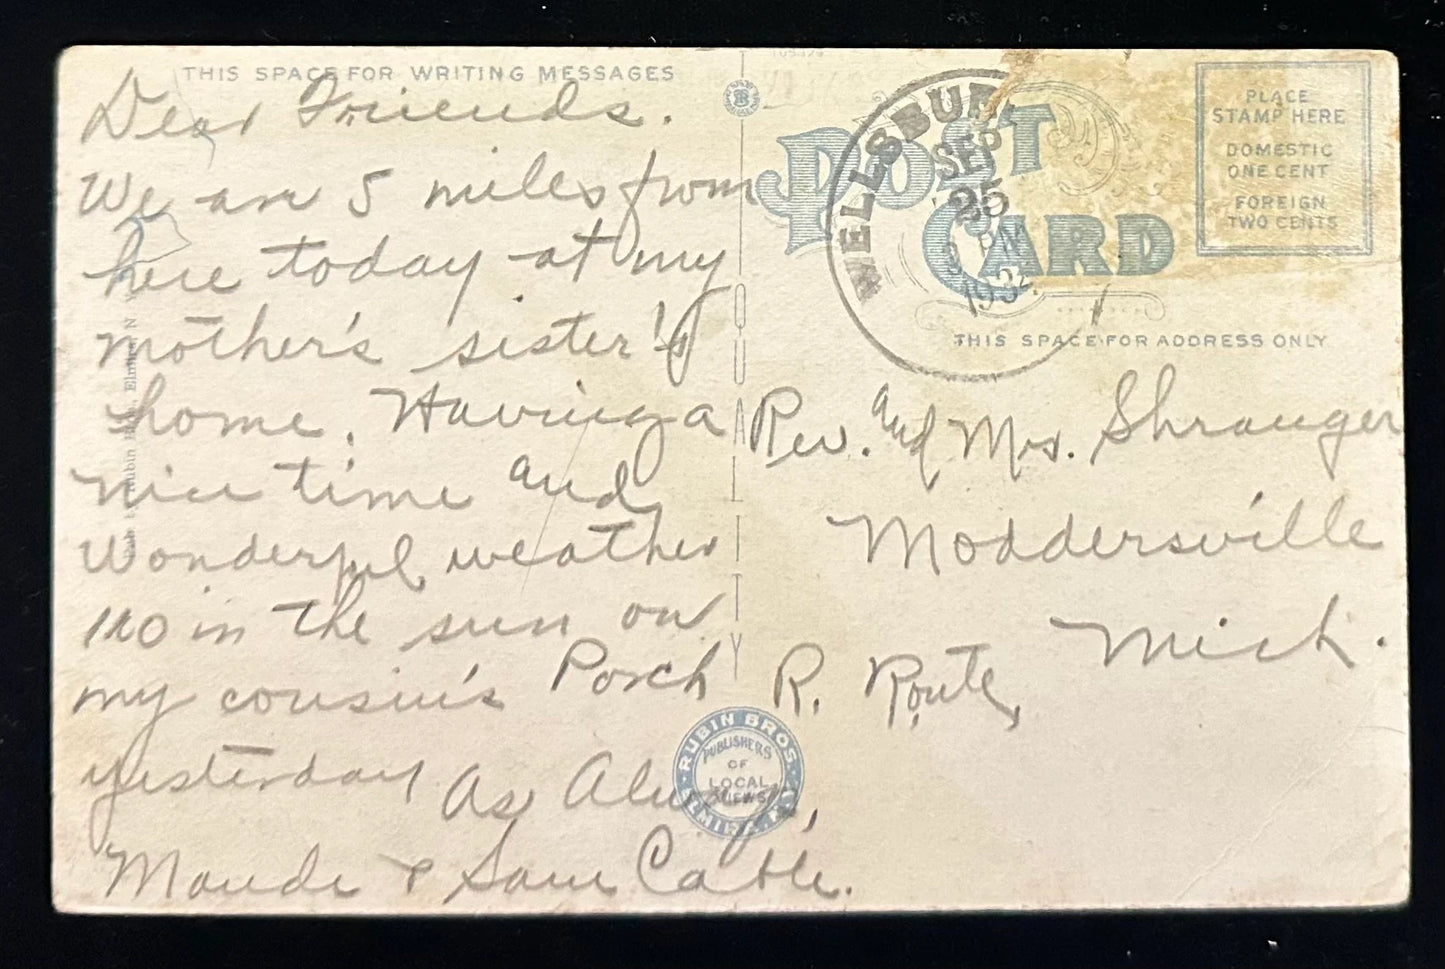 THIS SPACE FOR WRITING MESSAGES
Dear Friends.
We are 5 miles from
here today at my
mother's sister's
home. Having a
nice time and
Wonderful weather
110 in the sun on
my cousin's Porch
yesterday As Always,
Maude & Sam Cable.
POST
CARD
WELLSBURG
SEP
25
PM
193
PLACE
STAMP HERE
DOMESTIC
ONE CENT
FOREIGN
TWO CENTS
THIS SPACE FOR ADDRESS ONLY
Rev. and Mrs. Shrauger
Moddersville
Mich.
R. Route,
RUBIN BROS.
PUBLISHERS
OF
LOCAL
VIEWS
ELMIRA N.Y.
Rubin Elmira, N